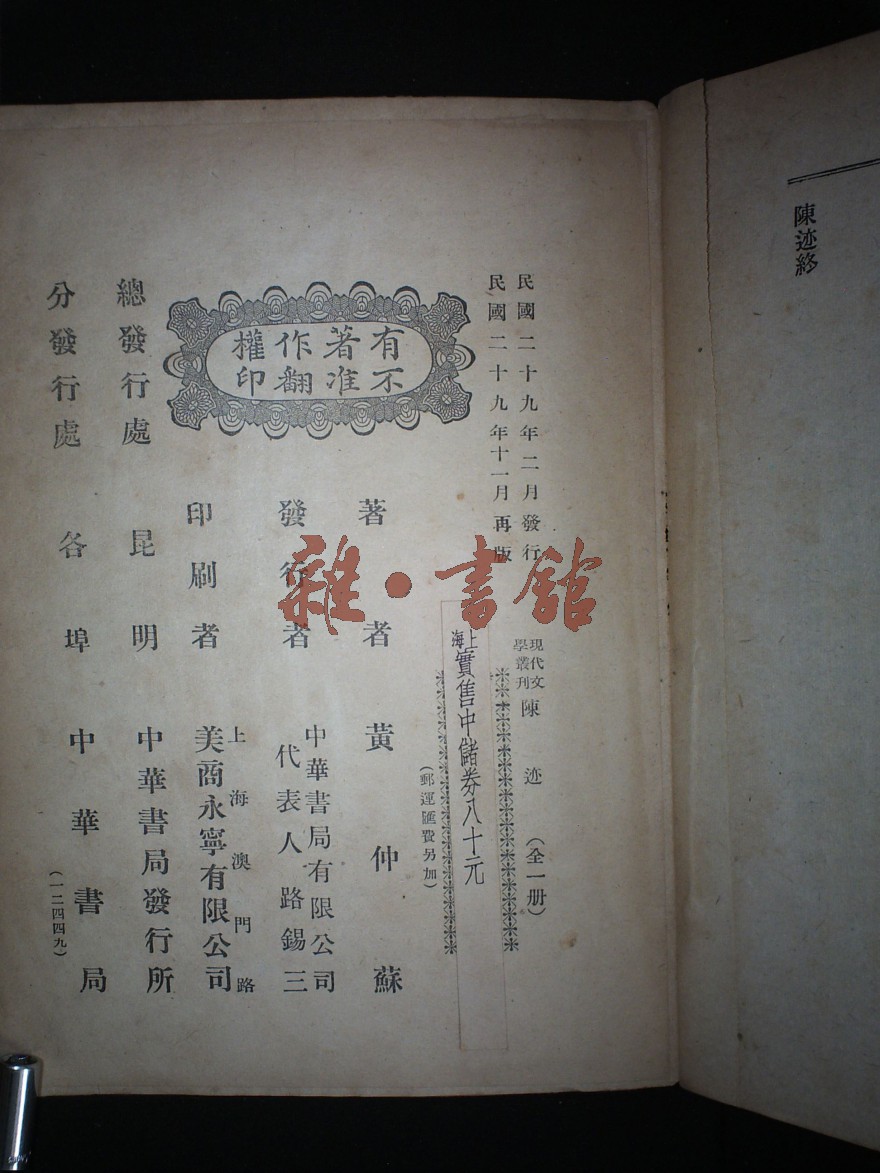 陳迹終
民國二十九年二月發行
民國二十九年十一月再版
現代文學叢刊 陳迹 (全一册)
上海實售中儲券八十元
(郵運匯費另加)
有著作權
不准翻印
著者 黃仲蘇
發行者 中華書局有限公司
代表人路錫三
印刷者 上海澳門路
美商永寧有限公司
總發行處 昆明 中華書局發行所
分發行處 各埠 中華書局
(一二四四九)
雜·書館